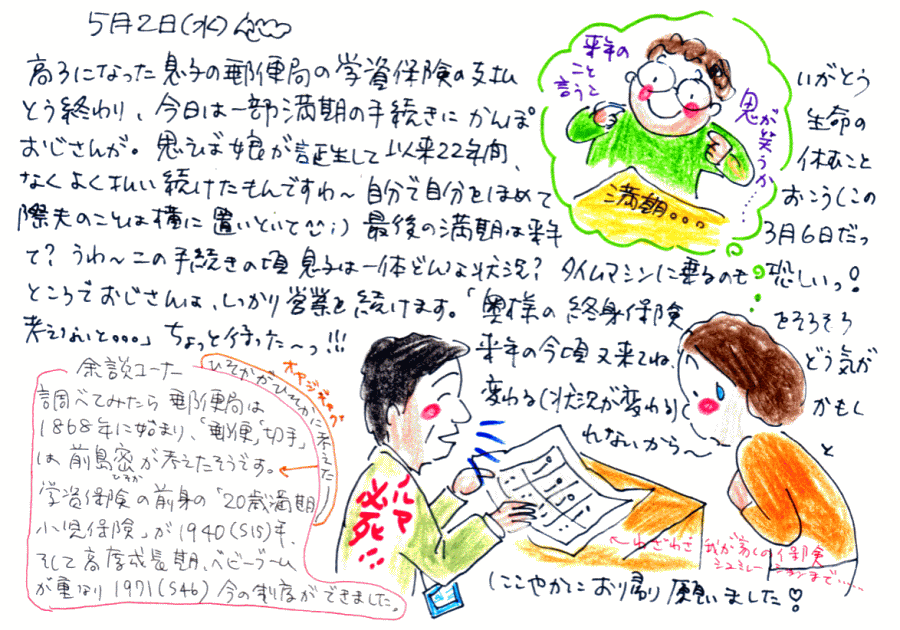 5月2日(水)
高3になった息子の郵便局の学資保険の支払いがとう
とう終わり、今日は一部満期の手続きにかんぽ生命の
おじさんが。思えば娘が誕生して以来22年間、休むこと
なくよく払い続けたもんですわ～自分で自分をほめておこう(この
際夫のことは横に置いといて^^;)最後の満期は来年3月6日だっ
て?うわ～この手続きの頃息子は一体どんな状況?タイムマシンに乗るのも恐しいっ!
ところでおじさんは、しっかり営業を続けます。「奥様の終身保険をそろそろ
考えないと。。。」ちょっと待った～っ!!!来年の今頃又来てね、どう気が
変わる(状況が変わる)かもし
れないから～と
にこやかにお引き取り願いました♡
来年の
こと
言うと
鬼が笑うか……
満期。。。
ノルマ
必死!!
←わざわざ我が家の保険
シュミレーションまで……
余談コーナー
調べてみたら郵便局は
1868年に始まり、「郵便」「切手」
は前島密が考えたそうです。
ひそか
学資保険の前身の「20歳満期
小児保険」が1940(S15)年、
そして高度成長期、ベビーブーム
が重なり1971(S46)今の制度ができました。
ひそかがひそかに考えた
オヤジギャグ